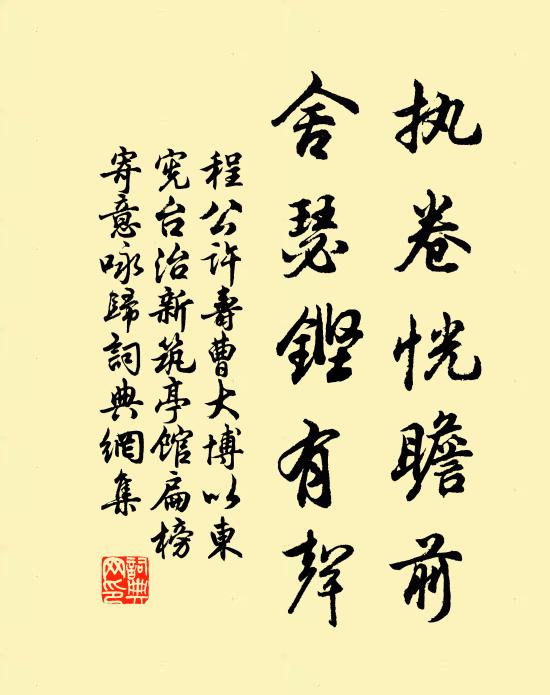 执卷恍瞻前
舍瑟铿有声
程公许寿曹大博以東
宪台治新筑亭馆扁榜
寄意咏歸詞典網集
詞典网印